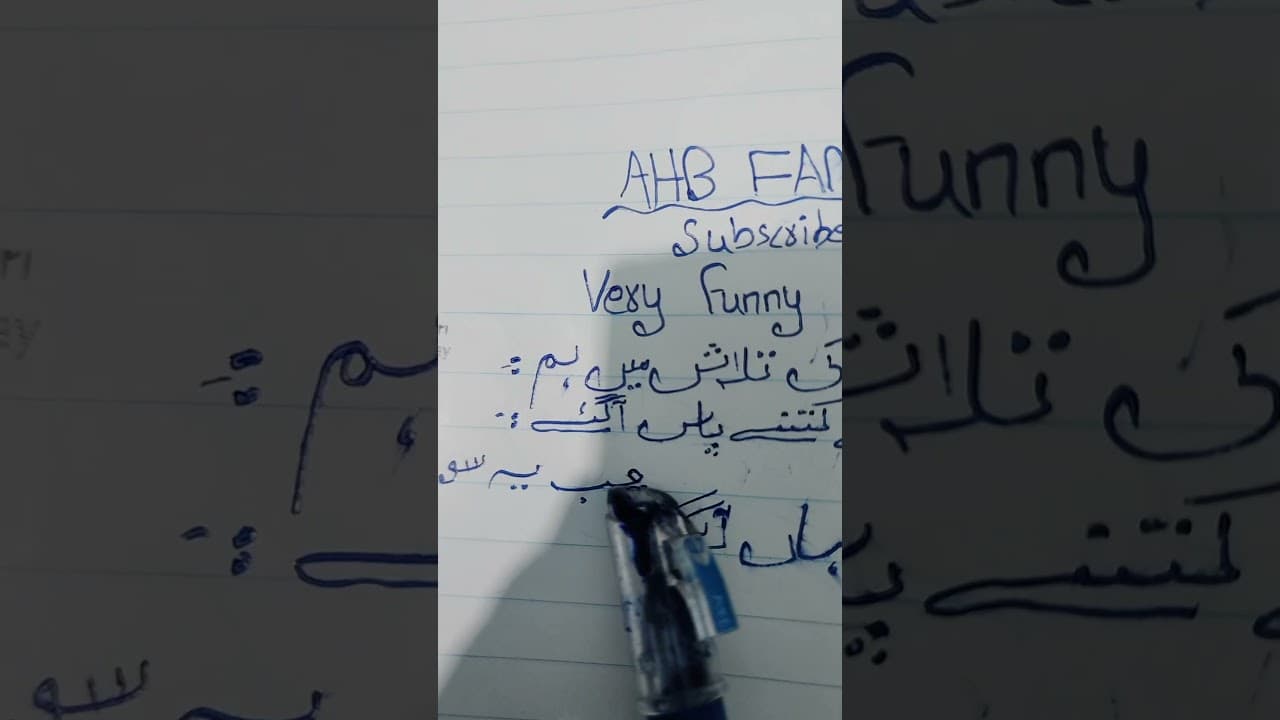 AHB FAM
Subscribe
Very Funny
کی تلاش میں ہم :-
کتنے پاس آگئے :-
جب یہ سو